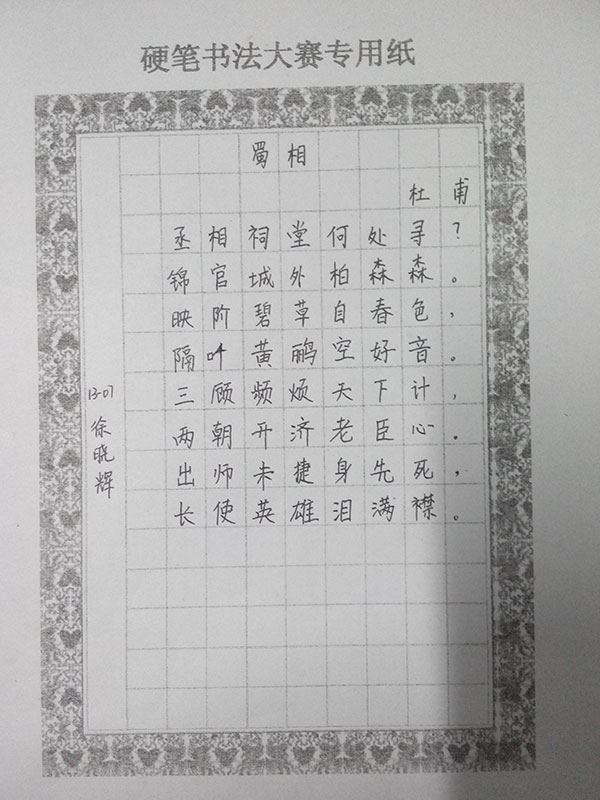 硬笔书法大赛专用纸
蜀相
杜甫
丞相祠堂何处寻？
锦官城外柏森森。
映阶碧草自春色，
隔叶黄鹂空好音。
三顾频烦天下计，
两朝开济老臣心。
出师未捷身先死，
长使英雄泪满襟。
13-07
徐晓辉